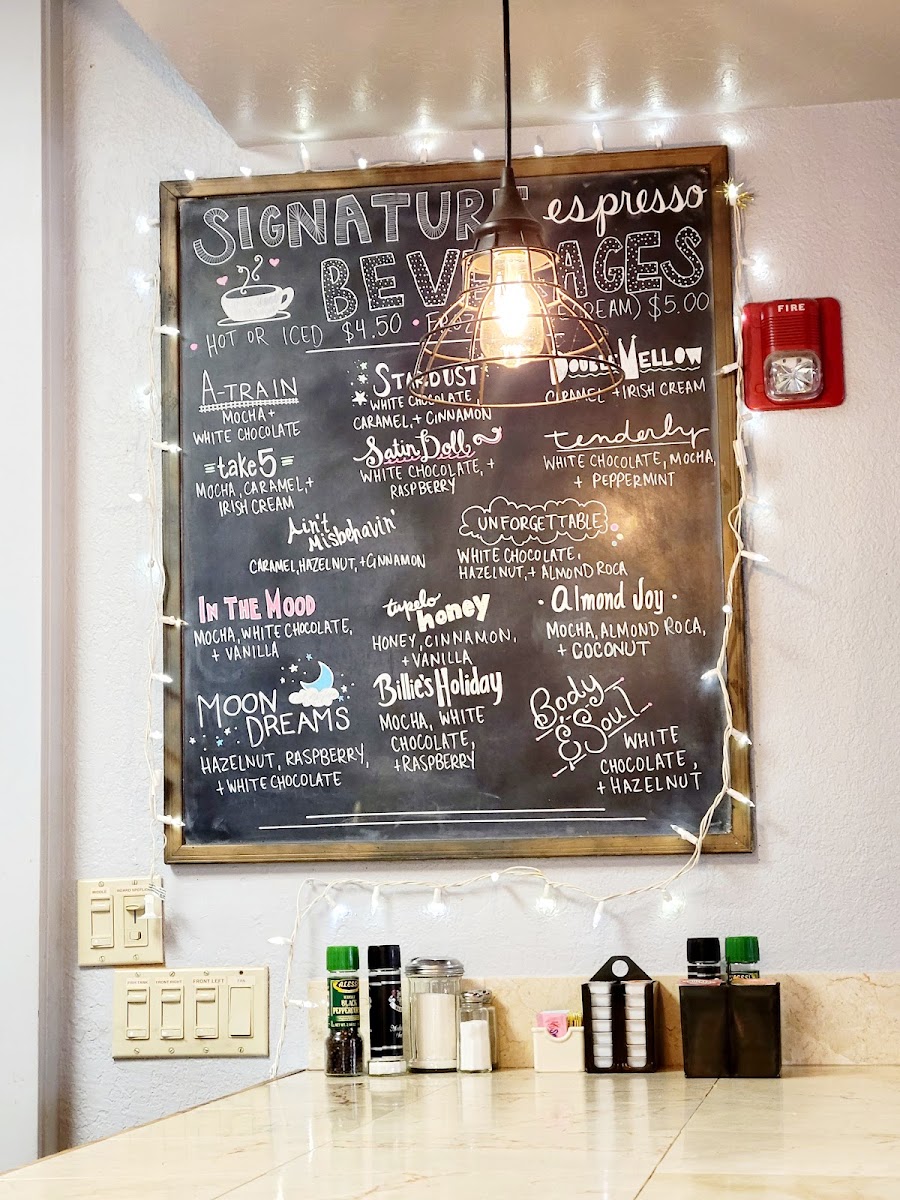 SIGNATURE espresso
BEVERAGES
HOT OR ICED $4.50 • FROZ REAM) $5.00
A-TRAIN
MOCHA +
WHITE CHOCOLATE
STARDUST
WHITE CHOCOLATE,
CARAMEL, + CINNAMON
DOUBLE MELLOW
CARAMEL + IRISH CREAM
=take 5=
MOCHA, CARAMEL, +
IRISH CREAM
Satin Doll
WHITE CHOCOLATE, +
RASPBERRY
tenderly
WHITE CHOCOLATE, MOCHA,
+ PEPPERMINT
Ain't
Misbehavin'
CARAMEL, HAZELNUT, + CINNAMON
UNFORGETTABLE
WHITE CHOCOLATE,
HAZELNUT, + ALMOND ROCA
IN THE MOOD
MOCHA, WHITE CHOCOLATE,
+ VANILLA
tupelo
honey
HONEY, CINNAMON,
+ VANILLA
• Almond Joy •
MOCHA, ALMOND ROCA,
+ COCONUT
MOON
DREAMS
HAZELNUT, RASPBERRY,
+ WHITE CHOCOLATE
Billie's Holiday
MOCHA, WHITE
CHOCOLATE,
+ RASPBERRY
Body
& Soul
WHITE
CHOCOLATE,
+ HAZELNUT
FIRE
FRONT RIGHT
FRONT LEFT
ALESSI
BLACK
PEPPERCORNS